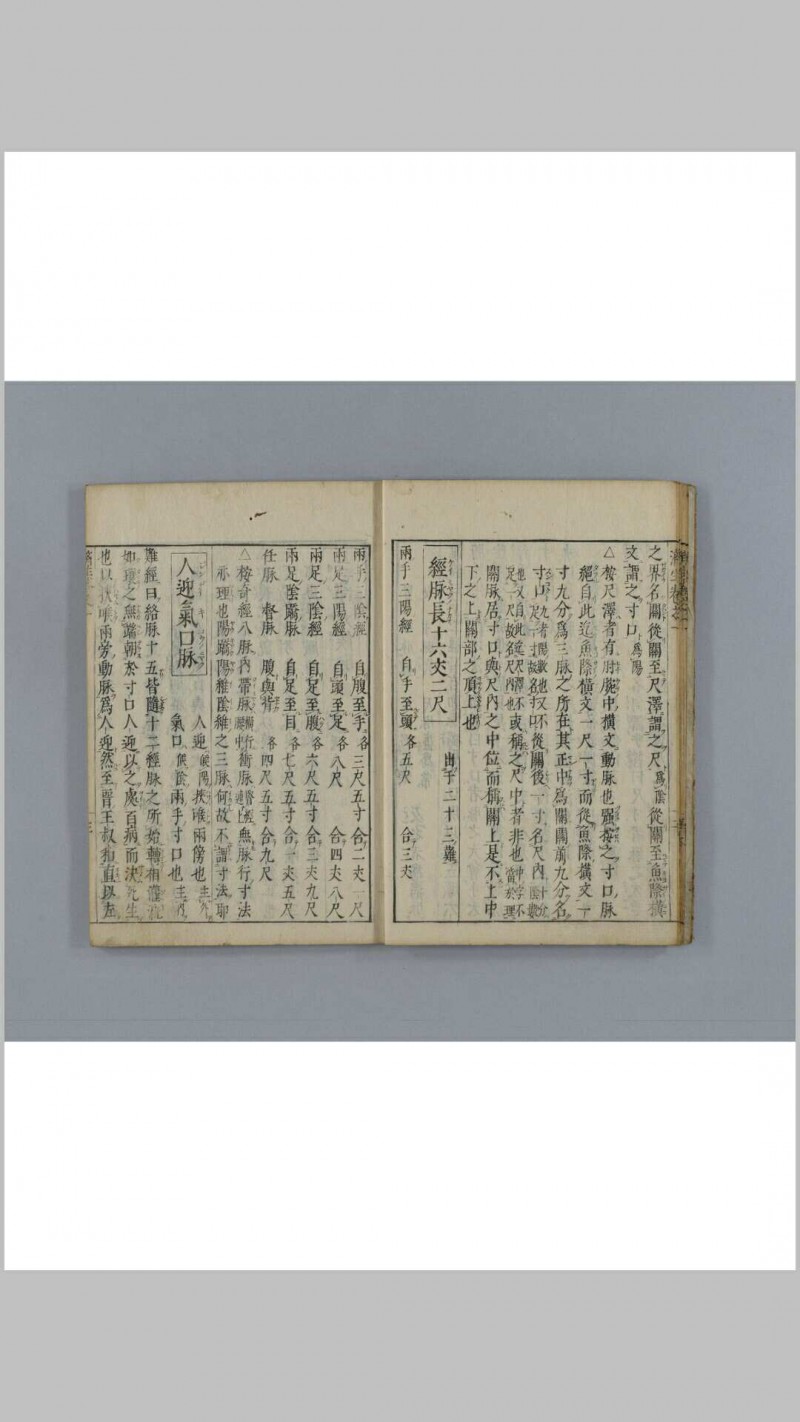 之界名關從關至尺澤謂之尺為陰從關至魚際橫
文謂之寸口為陽
△按尺澤者有肘腕中橫文動脉也強按之寸口脉
絕自此迄魚際橫文一尺一寸而從魚際橫文一
寸九分為三脉之所在其正中為關關前九分名
寸口九者陽數也又不從關後一寸名尺內十陰數
關脉居寸口與尺內之中位而稱關上是不上中
下之上關部之頂上也
經脉長十六丈二尺
出于二十三難
兩手三陽經 自手至頭各五尺 合三丈
兩手三陰經 自腹至手各三尺五寸合二丈一尺
兩足三陽經 自頭至足各八尺 合四丈八尺
兩足三陰經 自足至腹各六尺五寸合三丈九尺
兩足陰蹻脉 自足至目各七尺五寸合一丈五尺
任脉 督脉 腹與背各四尺五寸合九尺
△按奇經八脉內帶脉橫行腰中衝脉無脉行寸法
亦理也陽蹻陽維陰維之三脉何故不謂寸法耶
人迎氣口脉
人迎候陽挾喉兩傍也
氣口候陰兩手寸口也
難經曰絡脉十五皆隨十二經脉之所始轉相灌溉
如環之無端朝於寸口人迎以之處百病而決死生
也以挾喉兩旁動脉為人迎然至晋王叔和直以左